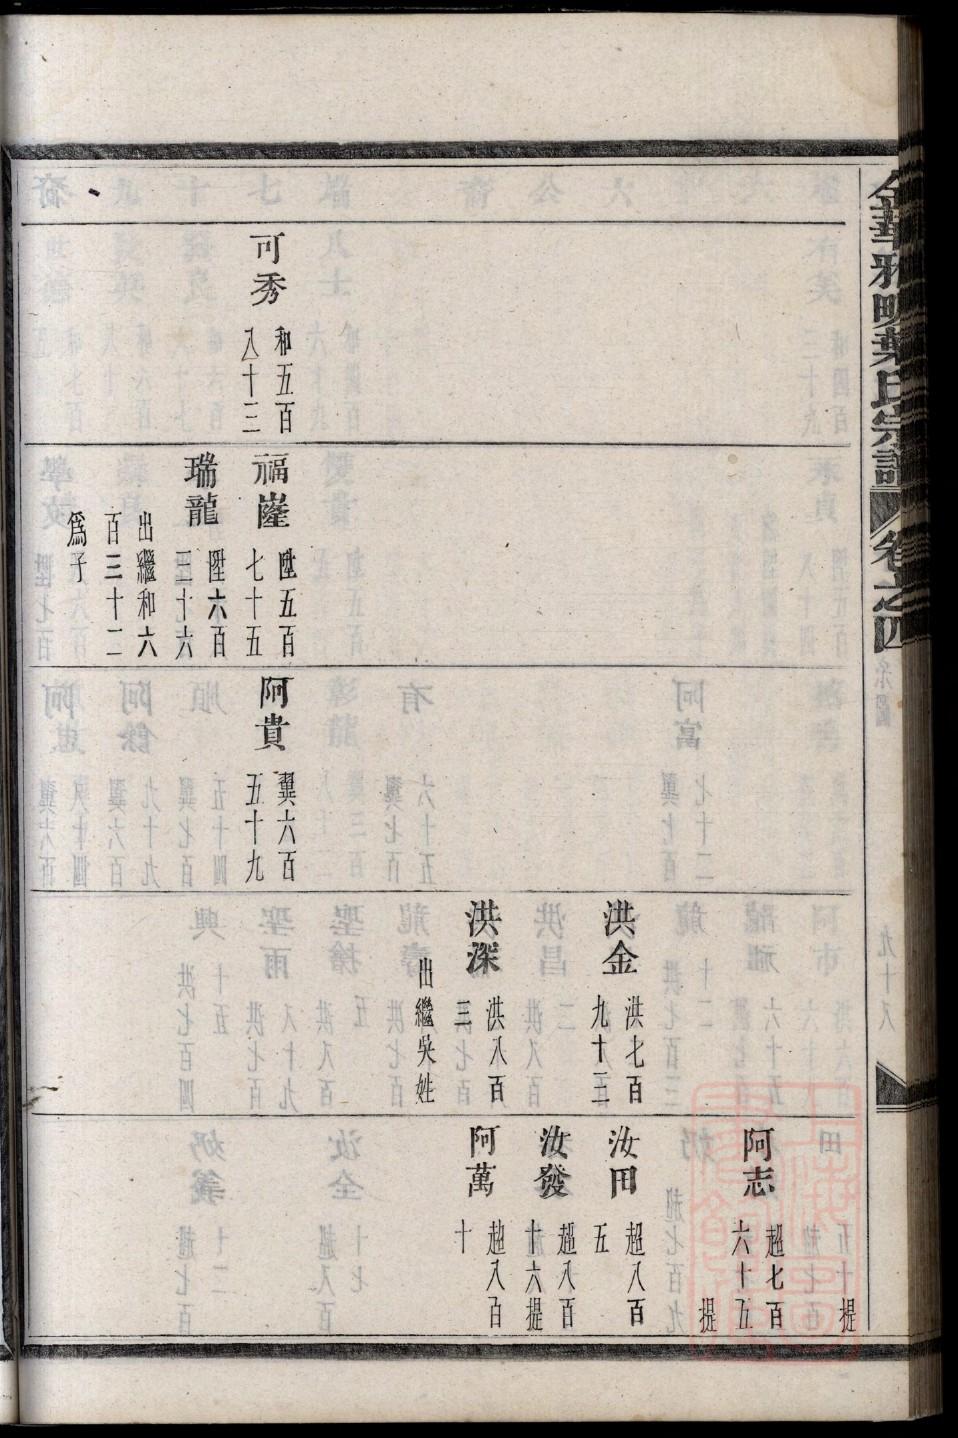 金華雅畈葉氏宗譜 卷之四
可秀
和五百
八十三
福𡹔
陞五百
七十五
瑞龍
陞六百
三十六
出繼和六
百三十二
爲子
阿貴
翼六百
五十九
洪金
洪七百
九十三
洪深
洪八百
三
出繼吳姓
提
阿志
趙七百
六十五
提
汝田
趙八百
五
汝發
趙八百
十六提
阿萬
趙八百
十